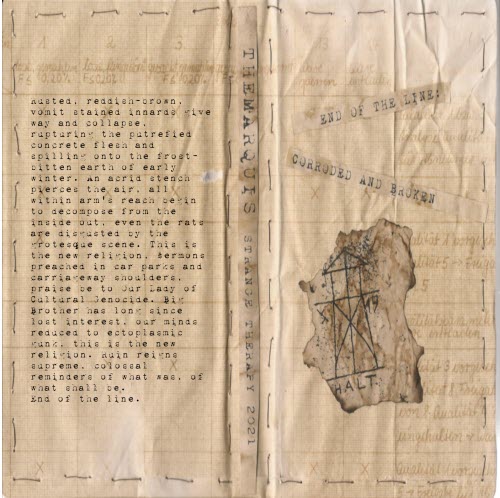 Rusted, reddish-brown,
vomit stained innards give
way and collapse,
rupturing the putrefied
concrete flesh and
spilling onto the frost-
bitten earth of early
winter. An acrid stench
pierces the air, all
within arm's reach begin
to decompose from the
inside out; even the rats
are disgusted by the
grotesque scene. This is
the new religion. Sermons
preached in car parks and
carriageway shoulders,
praise be to Our Lady of
Cultural Genocide. Big
Brother has long since
lost interest, our minds
reduced to ectoplasmic
gunk, this is the new
religion. Ruin reigns
supreme, colossal
reminders of what was, of
what shall be.
End of the line.
THE MARQUIS STRANGE THERAPY 2021
END OF THE LINE:
CORRODED AND BROKEN
HALT.